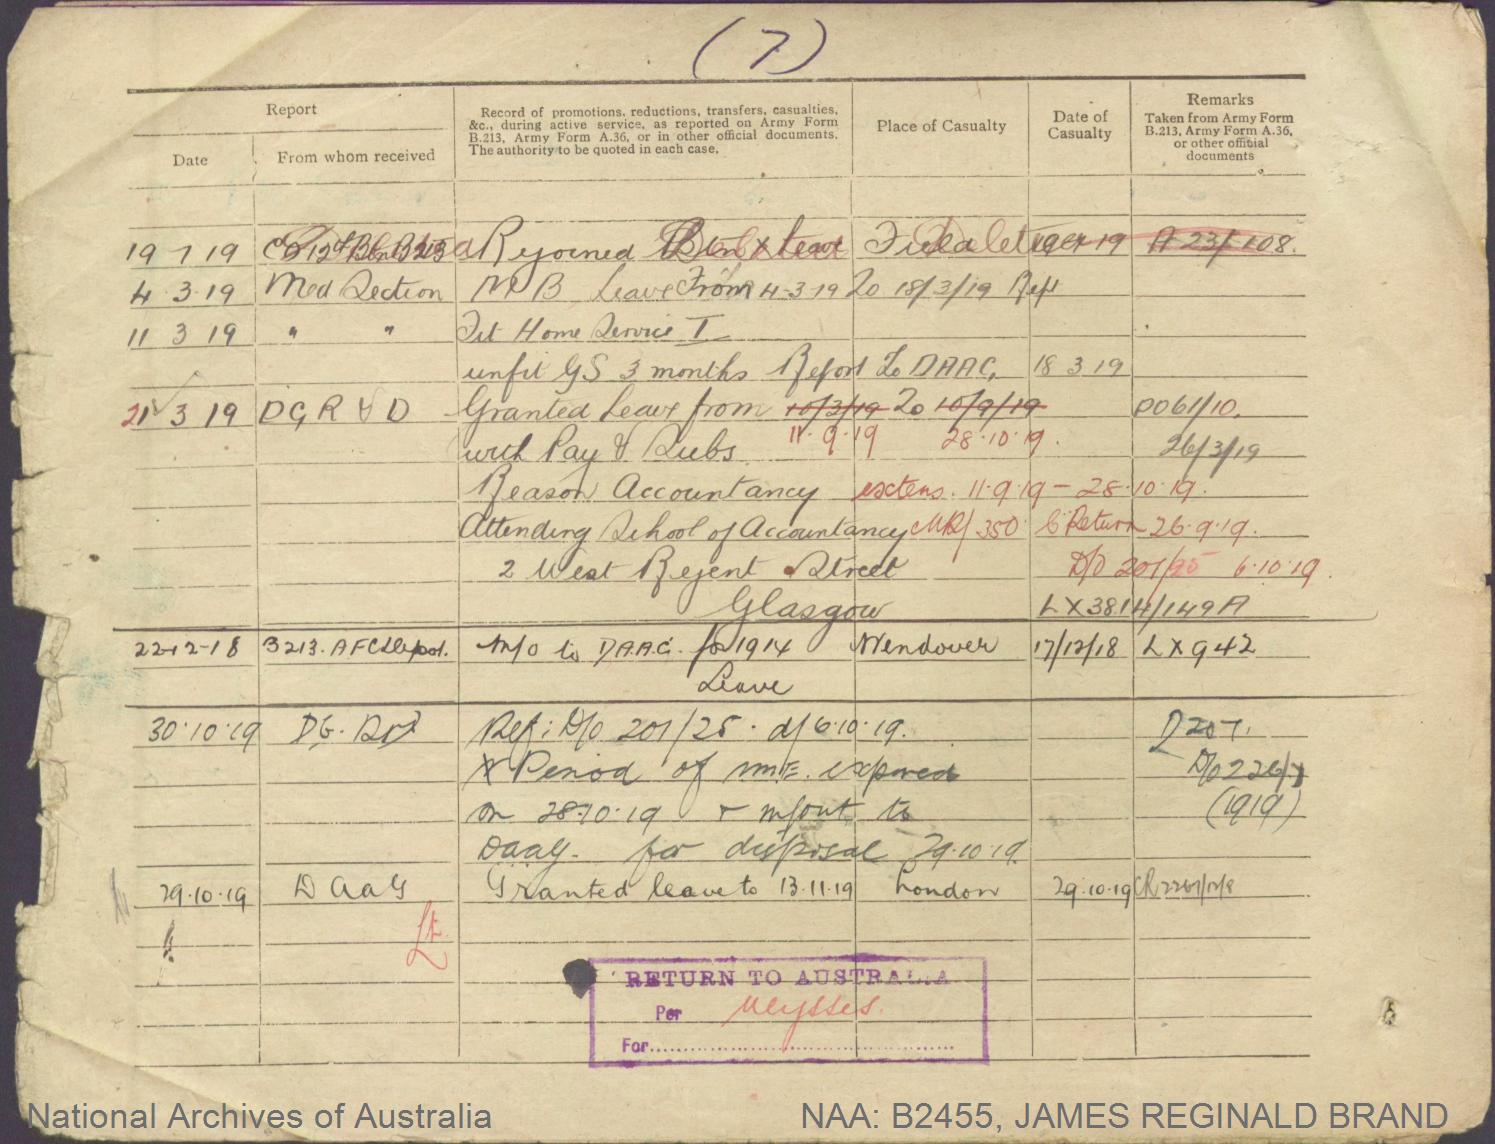 (7)
Report
Record of promotions, reductions, transfers, casualties, &c., during active service, as reported on Army Form B.213, Army Form A.36, or in other official documents. The authority to be quoted in each case.
Place of Casualty
Date of Casualty
Remarks
Taken from Army Form B.213, Army Form A.36, or other official documents
Date
From whom received
19 7 19 Rejoined Field A 23/108.
4 3 19 Med Section M B Leave From 4-3-19 To 18/3/19 Ref
11 3 19 " " Fit Home Service I
unfit GS 3 months Report to DAAG, 18 3 19
21 3 19 D G R & D Granted Leave from 10/3/19 To 10/9/19 DO61/10.
with Pay & Subs 11.9.19 28.10.19. 26/3/19
Reason Accountancy extens. 11.9.19 - 28.10.19.
Attending School of Accountancy MR/350 Return 26.9.19.
2 West Regent Street D/O 201/25 6.10.19.
Glasgow LX3814/149A
22-12-18 B213. AFC Depot. M/O to D.A.A.G. for 1914 Wendover 17/12/18 LX942
Leave
30.10.19 DG. R&D Ref: D/O 201/25. d/6.10.19. 207.
X Period of NME. expired D/O 226/7
on 28.10.19 & m/out to (1919)
DAAG. for disposal 29.10.19.
29.10.19 DAAG Granted leave to 13.11.19 London 29.10.19
Lt.
RETURN TO AUSTRALIA
Per Ulysses.
For
National Archives of Australia
NAA: B2455, JAMES REGINALD BRAND